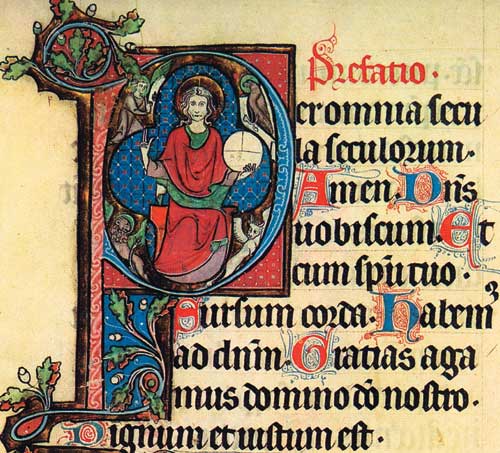 Prefatio·
Per omnia secu
la seculorum·
Amen. Dñs
uobiscum. Et
cum spũ tuo·
Sursum corda· Habemꝰ
ad dñm· Gratias aga
mus domino dõ nostro·
Dignum et iustum est·